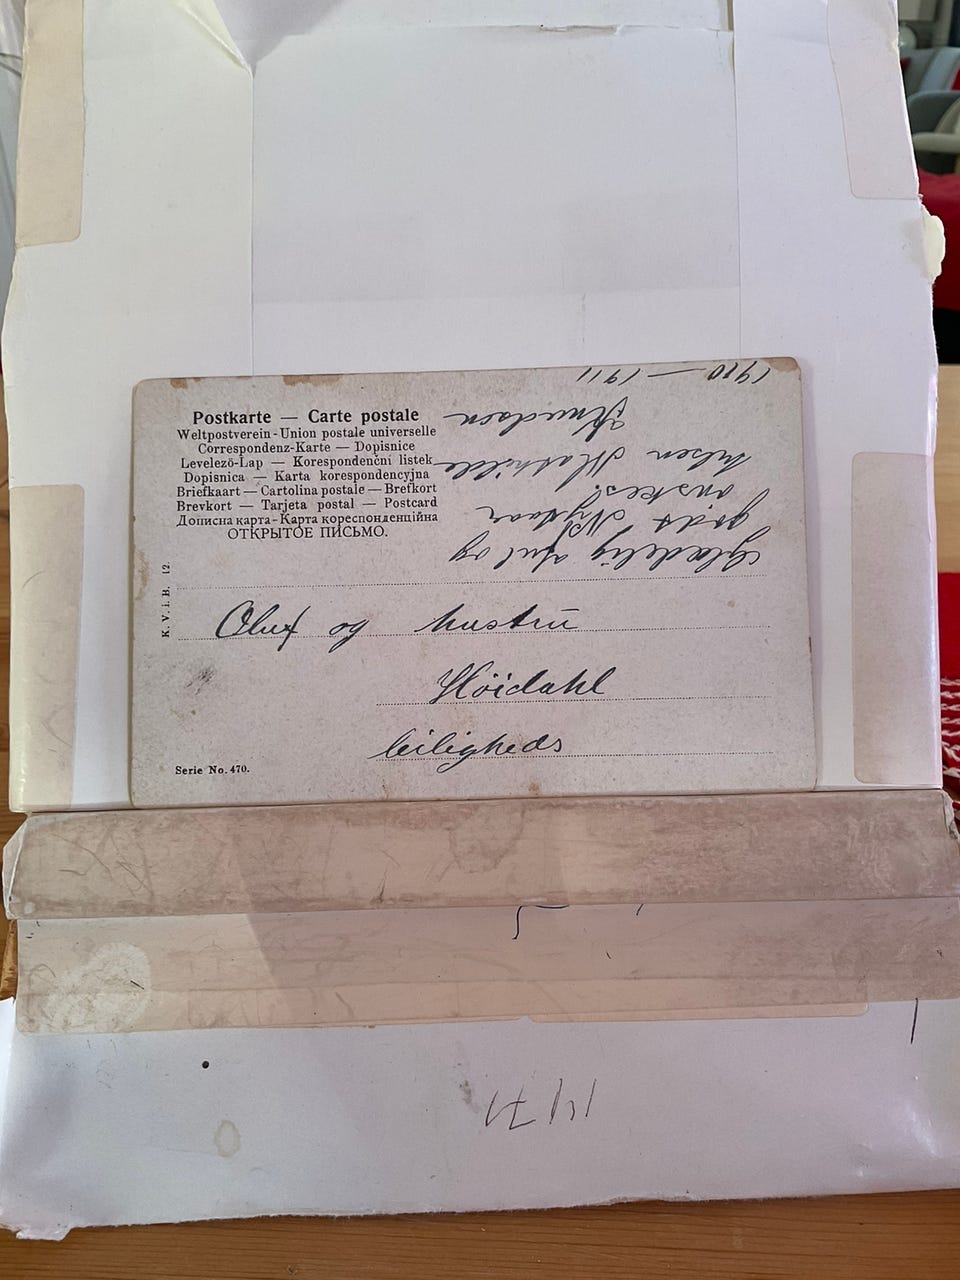 Postkarte — Carte postale
Weltpostverein - Union postale universelle
Correspondenz-Karte — Dopisnice
Levelező-Lap — Korespondenční listek
Dopisnica — Karta korespondencyjna
Briefkaart — Cartolina postale — Brefkort
Brevkort — Tarjeta postal — Postcard
Дописна карта - Карта кореспонденційна
ОТКРЫТОЕ ПИСЬМО.
Glædelig Jul og
godt Nytaar
ønskes!
hilsen Mathilde
Knudsen
1910 — 1911
K. V. i. B. 12.
Oluf og hustru
Höidahl
leiligheds
Serie No. 470.